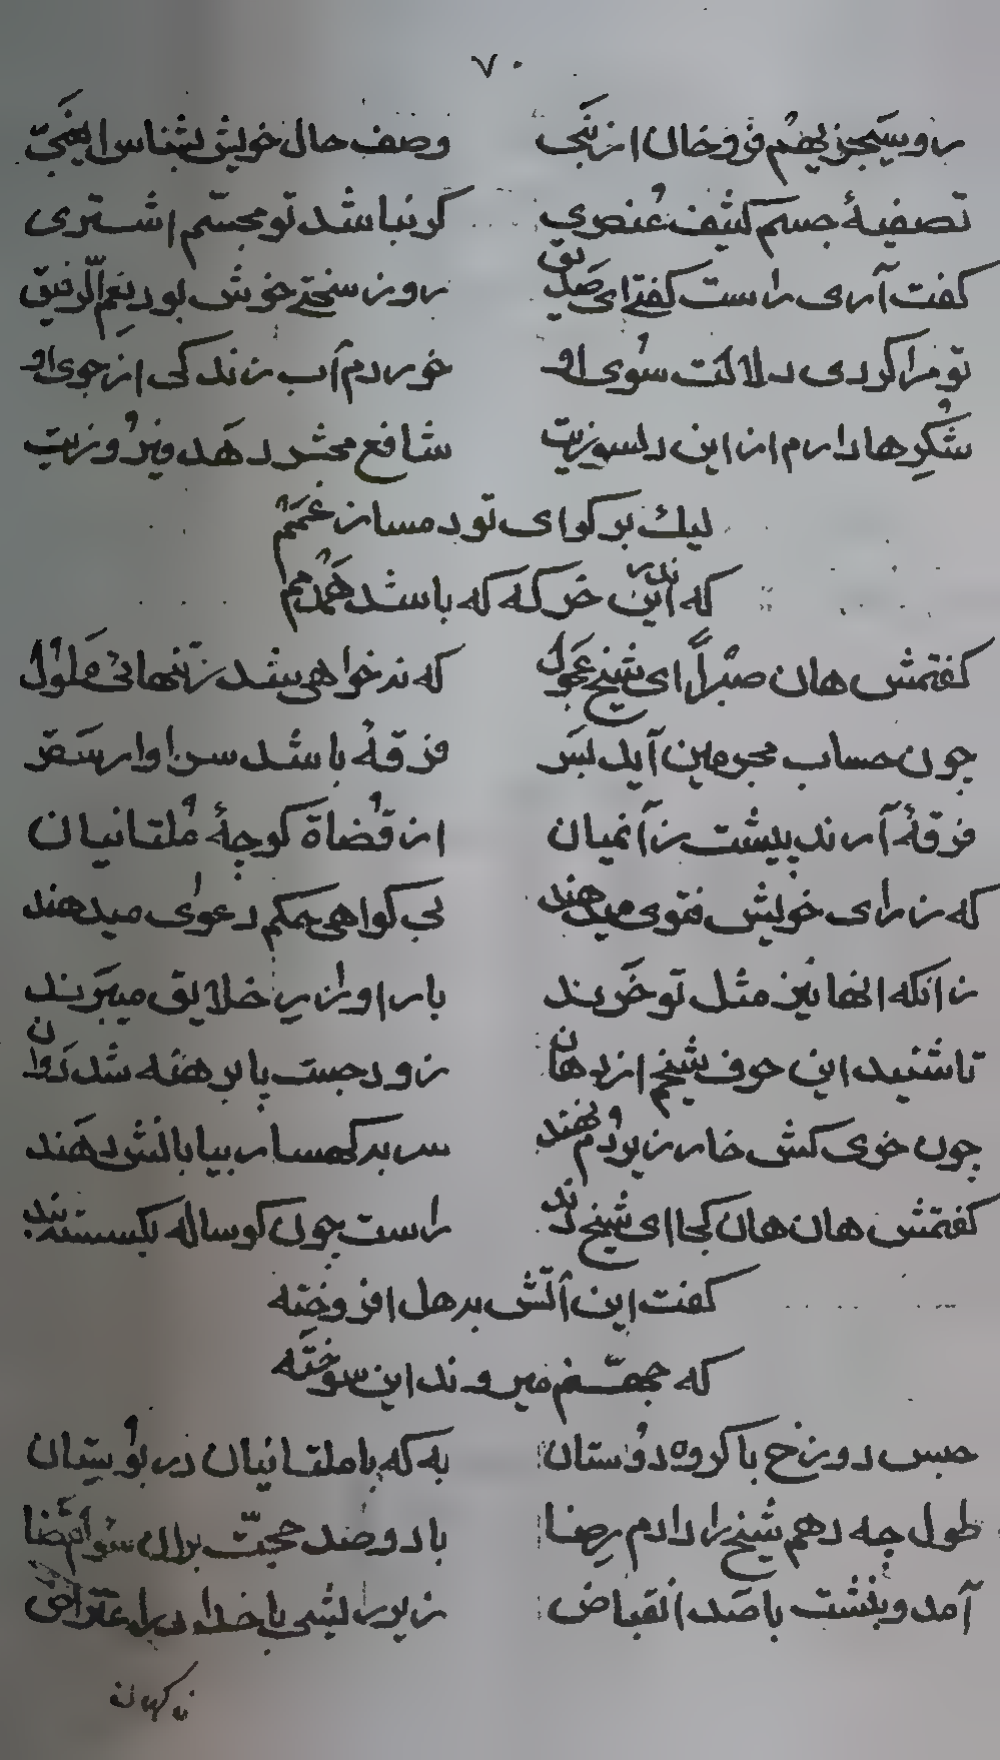 ۷۰
رو سیجزیهم فرو خوان از نبی وصف حال خویش بشناس ای
تصفیهٔ جسم کثیف عنصری کر نباشد تو مجسّم اشتری
کفت آری راست کفتی ای صدیق روز سختی خوش بود نعم الرّفیق
تو مرا کردی دلالت سوی او خوردم آب زندکی از جوی او
شُکرها دارم از این دلسوزیت شافع محشر دهد فیروزیت
لیك بر کو ای تو دمساز غمم
که اندرین خرکه که باشد همدمم
کفتمش هان صبراً ای شیخ عجول که نخواهی شد ز تنهائی ملول
چون حساب مجرمین آید بسر فرقهٔ باشد سزاوار سقر
فرقهٔ آرند پیشت زآنمیان از قُضاة کوچهٔ مُلتانیان
که ز رای خویش فتوی میدهند بی کواهی حکم دعوٰی میدهند
زانکه انها نیز مثل تو خرند بار اوزار خلایق میبرند
تا شنید این حرف شیخم از دهان زود جست پا برهنه شد روان
چون خری کش خار زیر دُم نهند سر بکهسار بیابانش دهند
کفتمش هان هان کجا ای شیخ رند راست چون کوساله بکسسته بند
کفت این آتش بدهل افروخته
که جهنّم میروند این سوخته
حبس دوزخ با کروه دوستان به که با ملتانیان در بوستان
طول چه دهم شیخ را دادم رضا با دو صد حجّت برای سوء القضا
آمد و بنشست با صد انقباض زیر لب با خدا در اعتراض